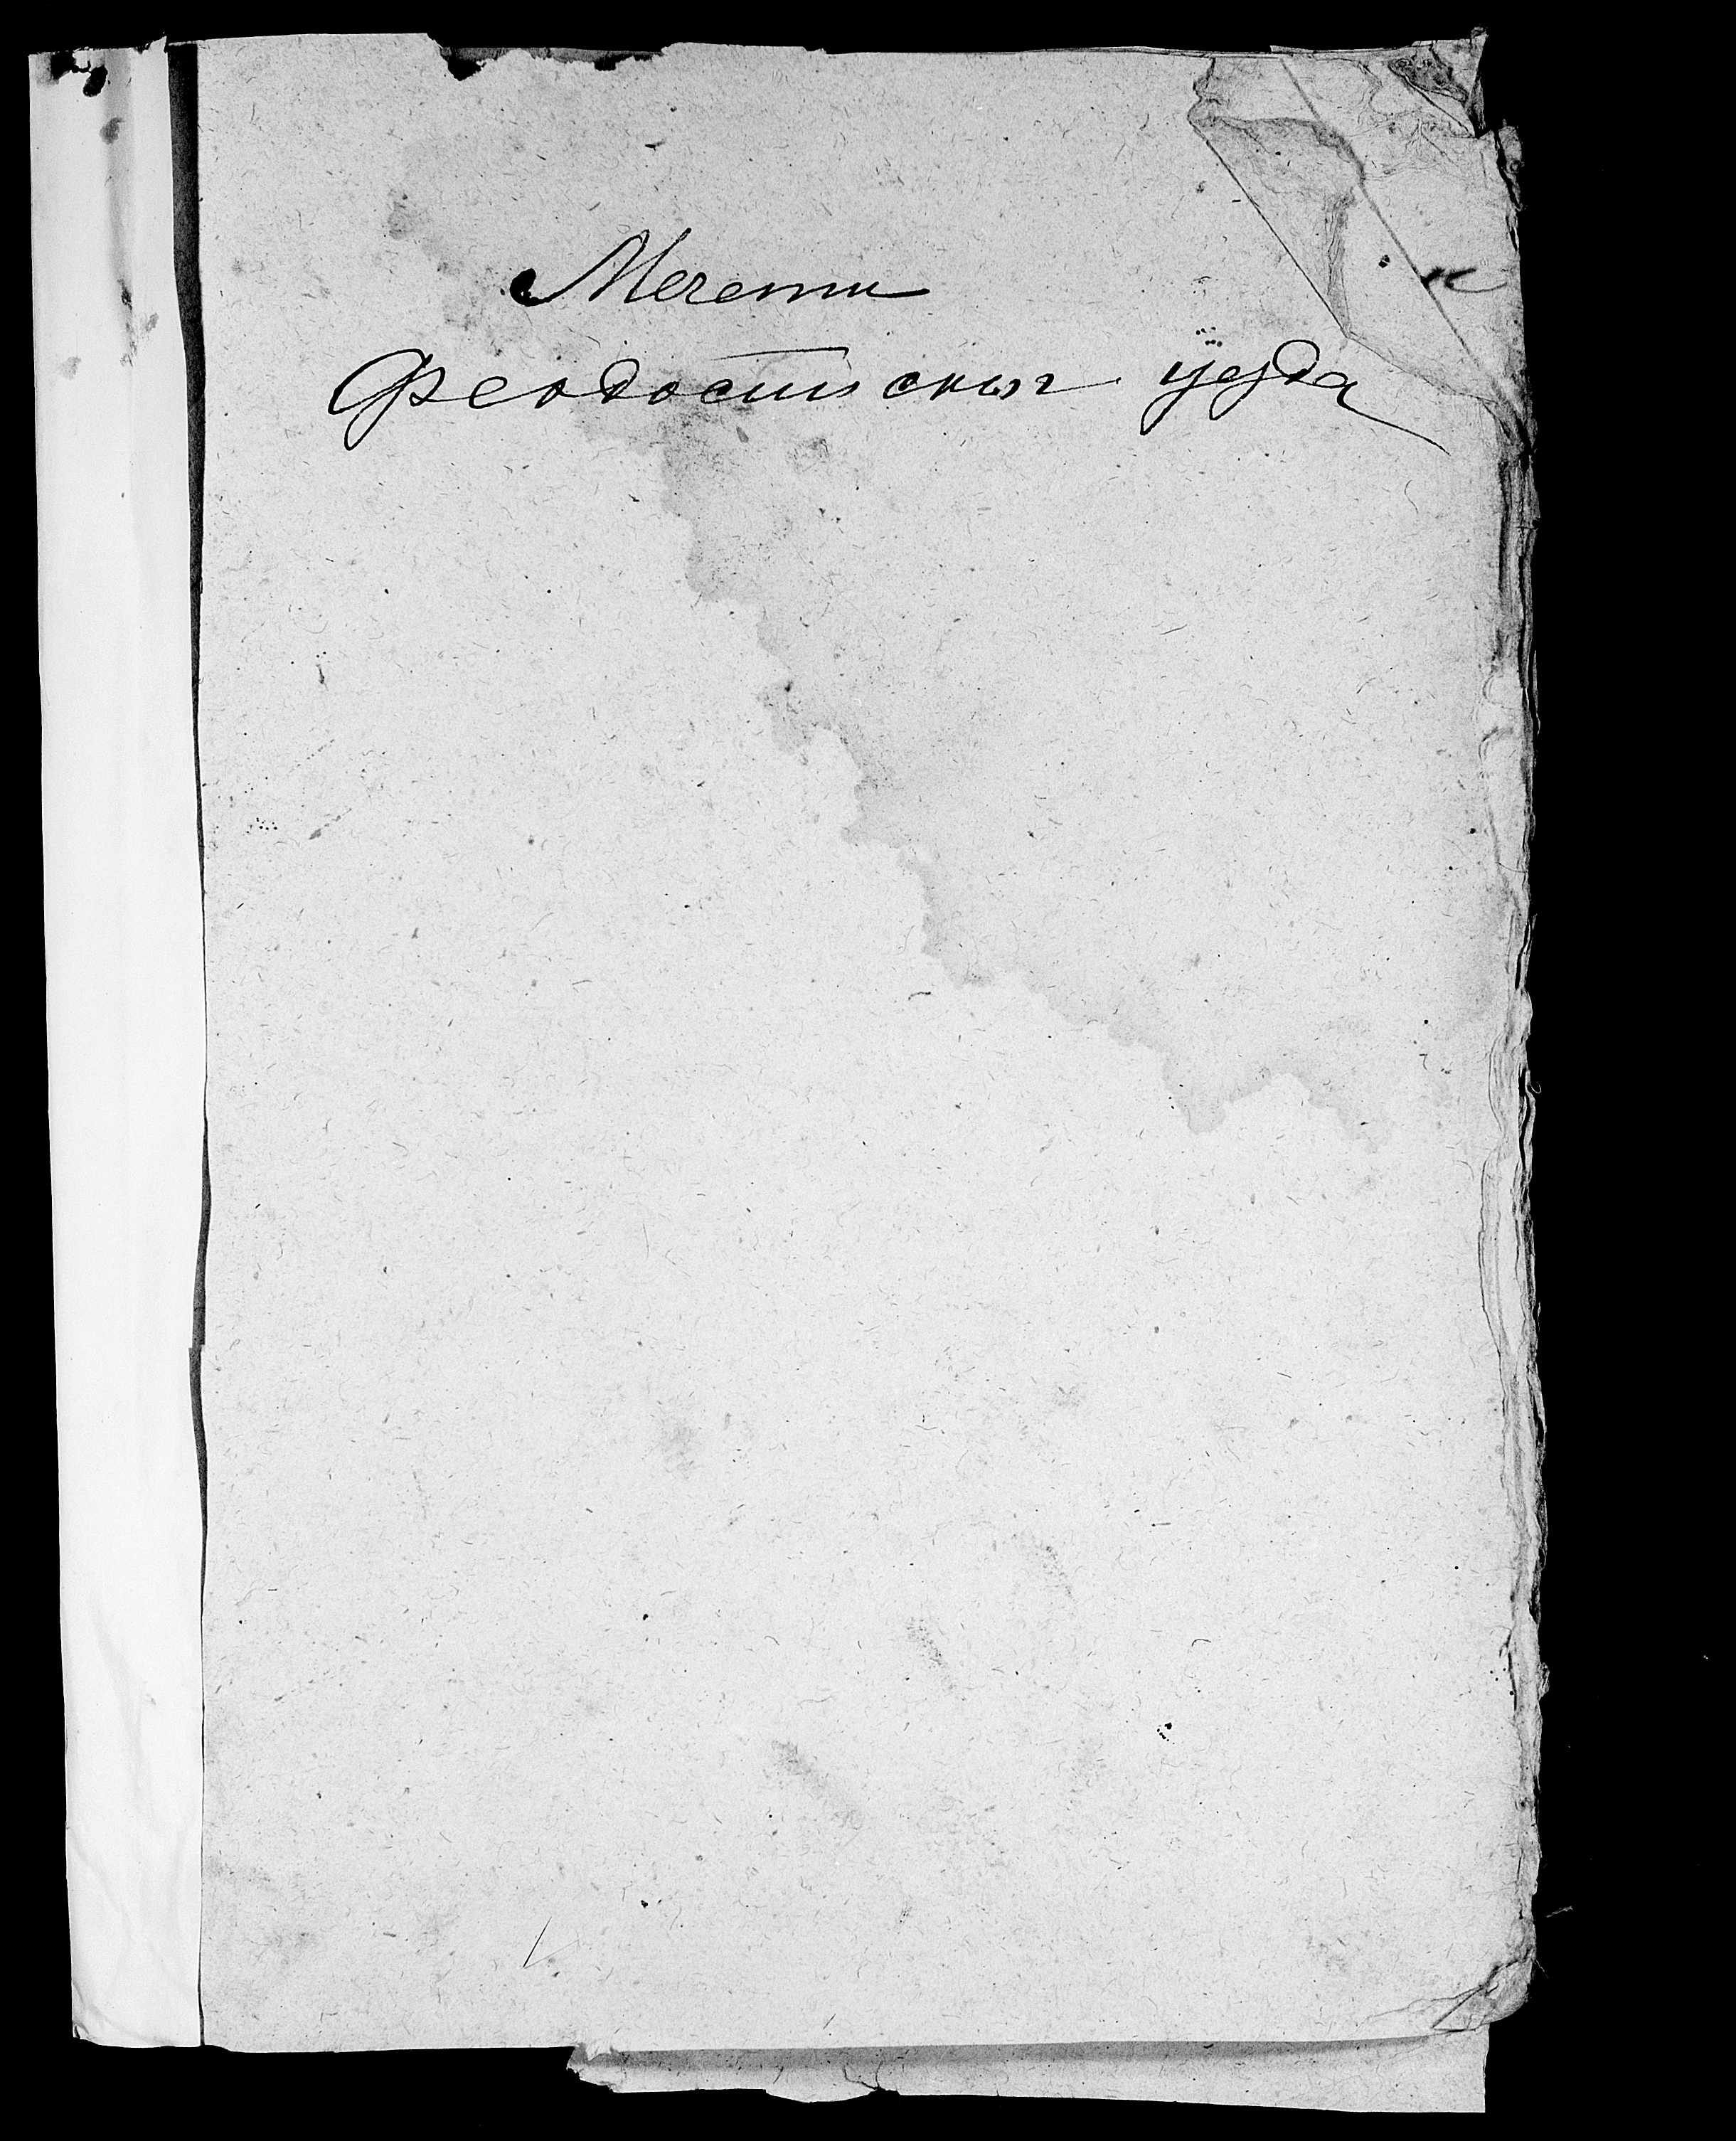 Мечети
Феодосийскаг уезда